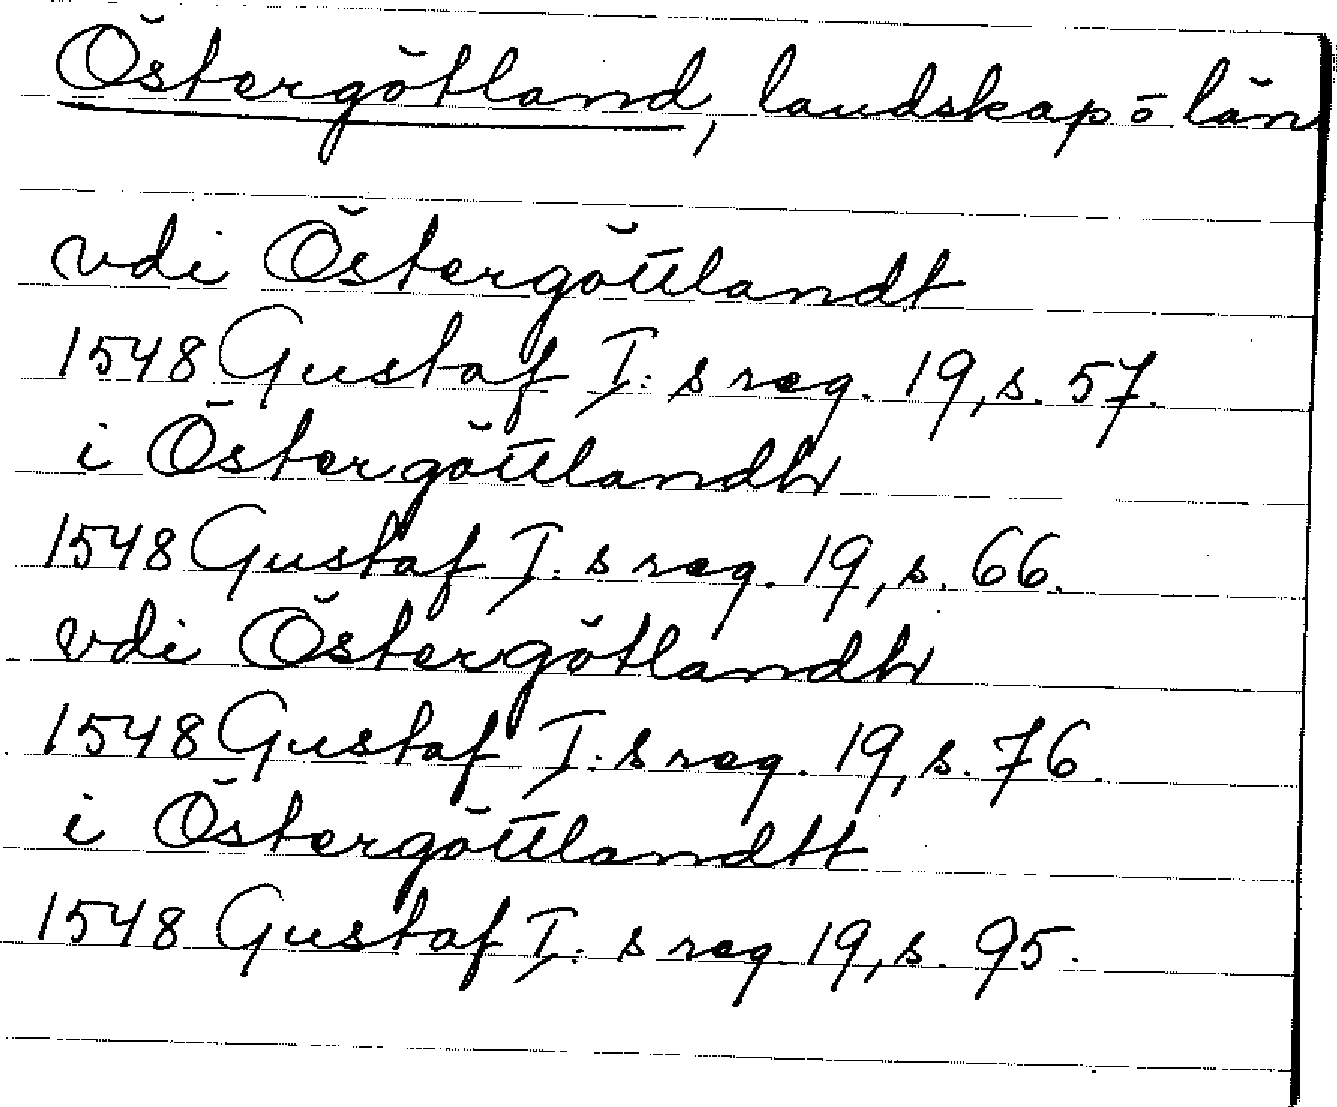 Östergötland, landskap o län
vdi Östergöttlandt
1548 Gustaf I:s reg. 19, s. 57.
i Östergöttlandh
1548 Gustaf I:s reg. 19, s. 66.
vdi Östergötlandh
1548 Gustaf I:s reg. 19, s. 76.
i Östergöttlandtt
1548 Gustaf I:s reg 19, s. 95.